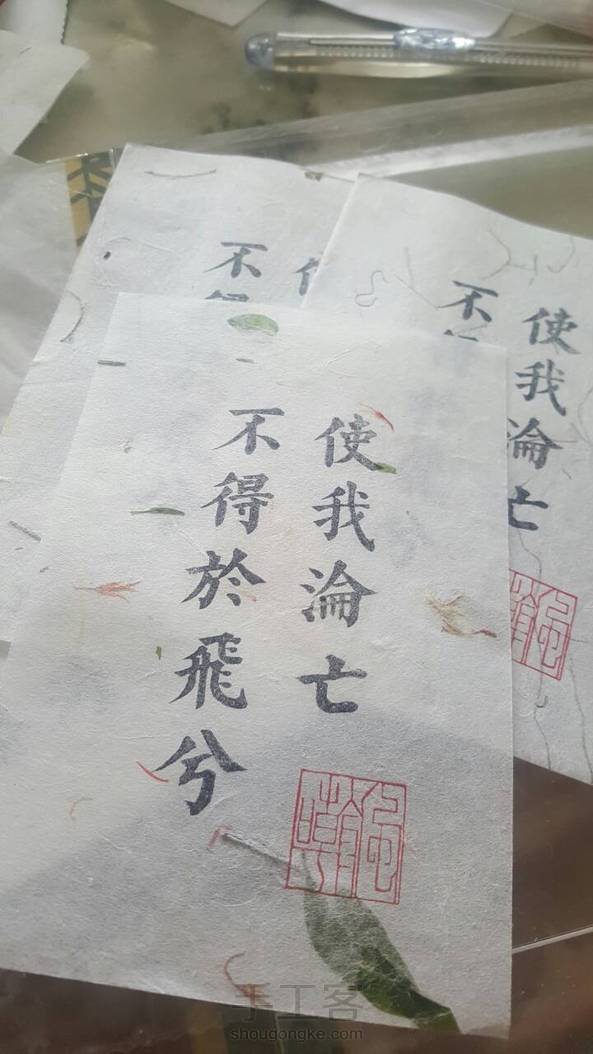 使我淪亡
不得於飛兮
使我淪亡
不
不
手工客
shougongke.com